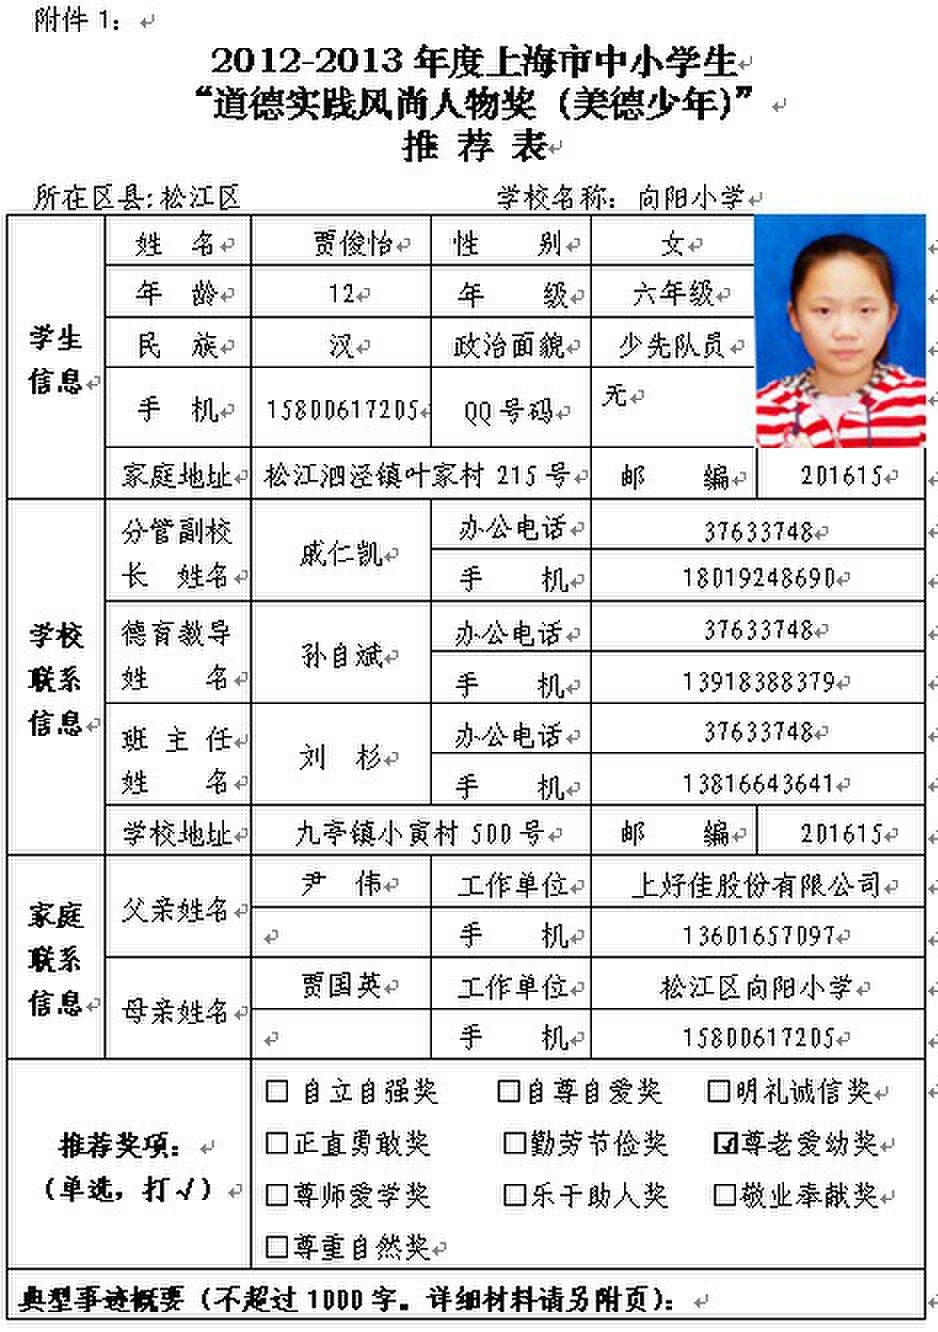 附件 1：
2012-2013 年度上海市中小学生
“道德实践风尚人物奖（美德少年）”
推 荐 表
所在区县:松江区 学校名称：向阳小学
学生信息
姓 名 贾俊怡 性 别 女
年 龄 12 年 级 六年级
民 族 汉 政治面貌 少先队员
手 机 15800617205 QQ 号码 无
家庭地址 松江泗泾镇叶家村 215 号 邮 编 201615
学校联系信息
分管副校长 姓名 戚仁凯 办公电话 37633748
手 机 18019248690
德育教导姓 名 孙自斌 办公电话 37633748
手 机 13918388379
班 主 任姓 名 刘 杉 办公电话 37633748
手 机 13816643641
学校地址 九亭镇小寅村 500 号 邮 编 201615
家庭联系信息
父亲姓名 尹 伟 工作单位 上好佳股份有限公司
手 机 13601657097
母亲姓名 贾国英 工作单位 松江区向阳小学
手 机 15800617205
推荐奖项：
（单选，打√）
□ 自立自强奖 □自尊自爱奖 □明礼诚信奖
□正直勇敢奖 □勤劳节俭奖 ☑尊老爱幼奖
□尊师爱学奖 □乐于助人奖 □敬业奉献奖
□尊重自然奖
典型事迹概要（不超过 1000 字。详细材料请另附页）：